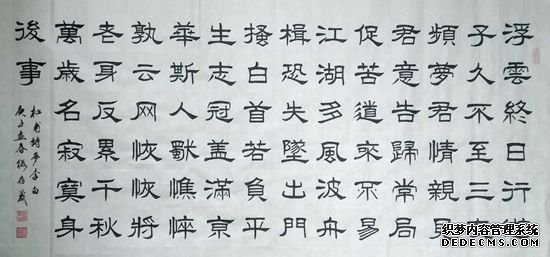 浮雲終日行遊
子久不至三夜
頻夢君情親見
君意告歸常局
促苦道來不易
江湖多風波舟
楫恐失墜出門
搔白首若負平
生志冠蓋滿京
華斯人獨憔悴
孰云网恢恢將
老身反累千秋
萬歲名寂寞身
後事
杜甫詩夢李白
庚子春
织梦内容管理系统
DEDECMS.COM